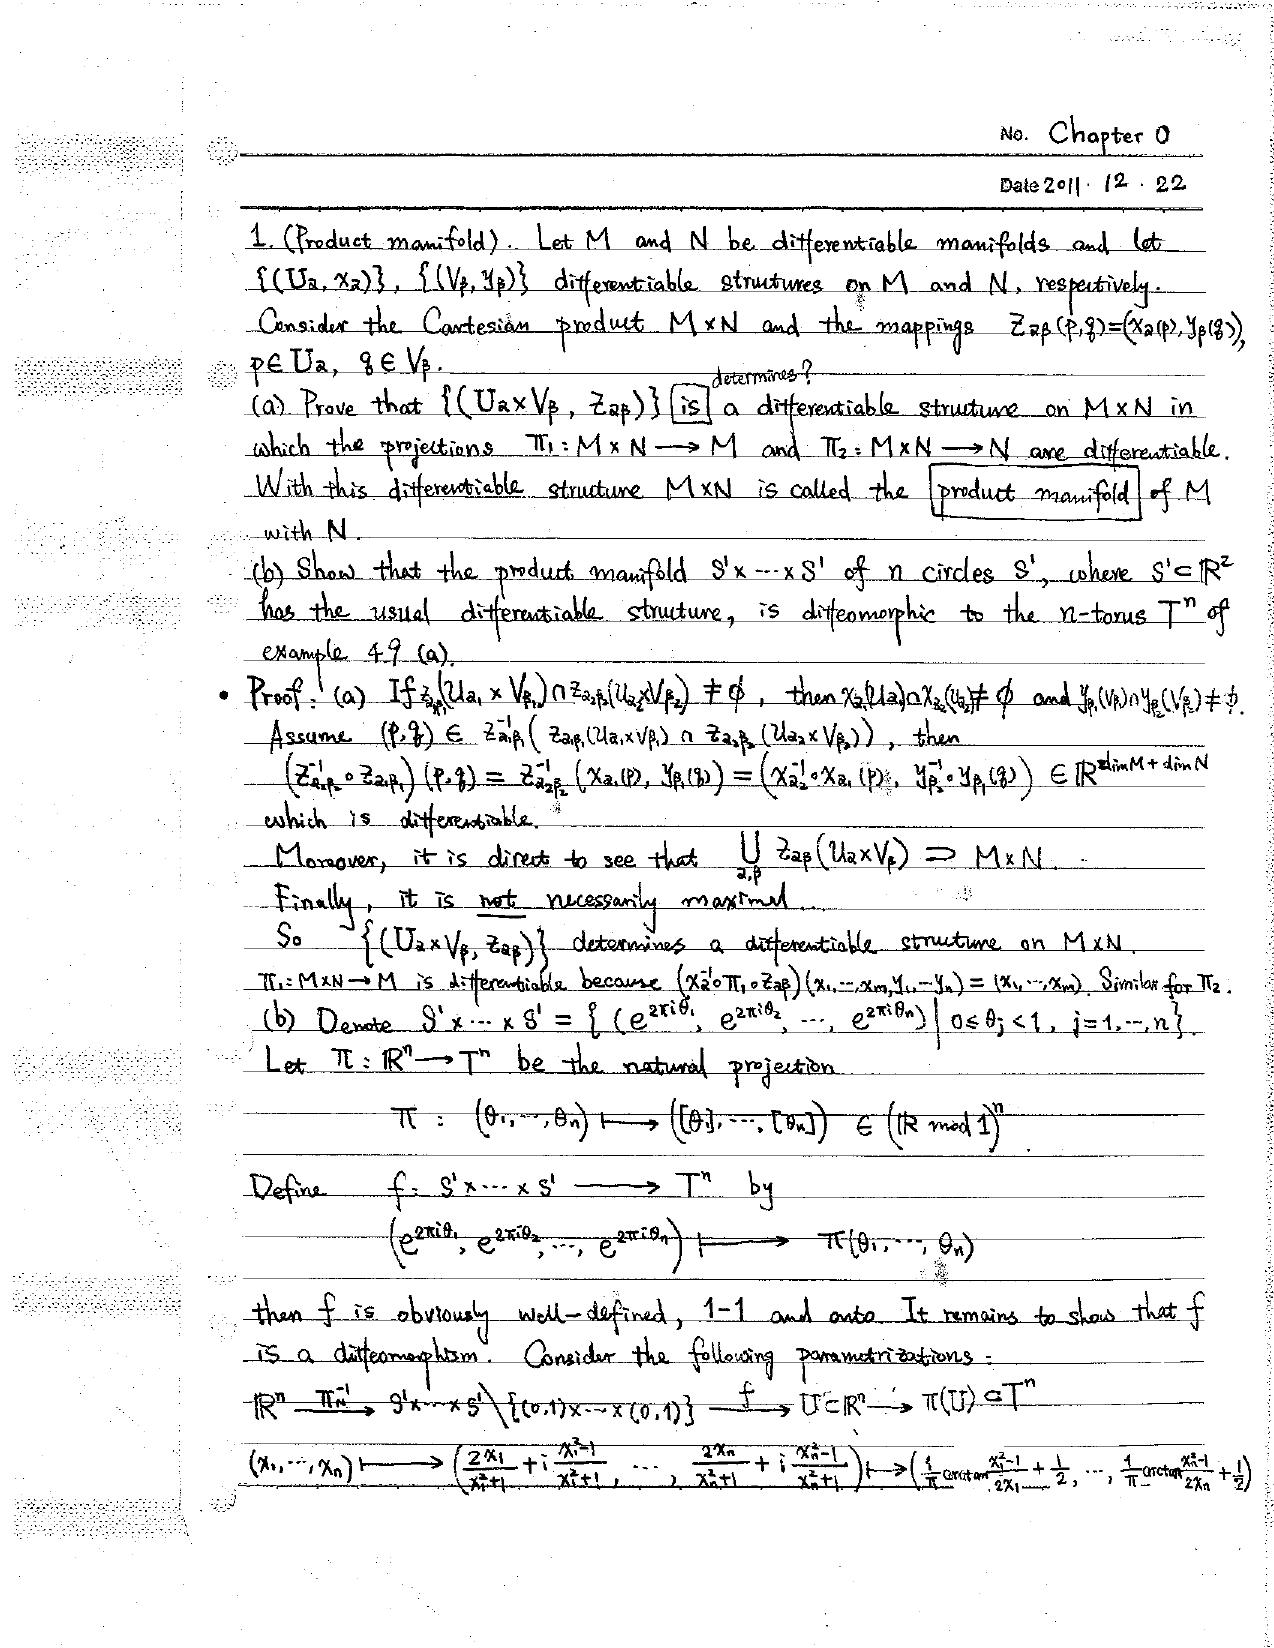 No. Chapter 0
Date 2011 . 12 . 22
1. (Product manifold). Let M and N be differentiable manifolds and let
{(Uα, xα)}, {(Vβ, yβ)} differentiable structures on M and N, respectively.
Consider the Cartesian product M×N and the mappings Zαβ(p,q)=(xα(p), yβ(q)),
p∈Uα, q∈Vβ.
determines?
(a) Prove that {(Uα×Vβ, Zαβ)} is a differentiable structure on M×N in
which the projections π₁: M×N → M and π₂: M×N → N are differentiable.
With this differentiable structure M×N is called the product manifold of M
with N.
(b) Show that the product manifold S¹×···×S¹ of n circles S¹, where S¹⊂ℝ²
has the usual differentiable structure, is diffeomorphic to the n-torus Tⁿ of
example 4.9 (a).
• Proof: (a) If Zα₁β₁(Uα₁×Vβ₁)∩Zα₂β₂(Uα₂×Vβ₂) ≠ φ, then xα₁(Uα₁)∩xα₂(Uα₂) ≠ φ and yβ₁(Vβ₁)∩yβ₂(Vβ₂) ≠ φ.
Assume (p,q) ∈ Zα₁β₁⁻¹(Zα₁β₁(Uα₁×Vβ₁) ∩ Zα₂β₂(Uα₂×Vβ₂)), then
(Zα₂β₂⁻¹∘Zα₁β₁)(p,q) = Zα₂β₂⁻¹(xα₁(p), yβ₁(q)) = (xα₂⁻¹∘xα₁(p), yβ₂⁻¹∘yβ₁(q)) ∈ ℝ^{dimM+dimN}
which is differentiable.
Moreover, it is direct to see that ⋃α,β Zαβ(Uα×Vβ) ⊃ M×N.
Finally, it is not necessarily maximal.
So {(Uα×Vβ, Zαβ)} determines a differentiable structure on M×N.
π₁: M×N→M is differentiable because (xα⁻¹∘π₁∘Zαβ)(x₁,···,xm,y₁,···yn) = (x₁,···,xm). Similar for π₂.
(b) Denote S¹×···×S¹ = {(e^{2πiθ₁}, e^{2πiθ₂}, ···, e^{2πiθn}) | 0≤θj<1, j=1,···,n}.
Let π: ℝⁿ → Tⁿ be the natural projection
π : (θ₁,···,θn) ↦ ([θ₁],···,[θn]) ∈ (ℝ mod 1)ⁿ
Define f: S¹×···×S¹ → Tⁿ by
(e^{2πiθ₁}, e^{2πiθ₂}, ···, e^{2πiθn}) ↦ π(θ₁,···,θn)
then f is obviously well-defined, 1-1 and onto. It remains to show that f
is a diffeomorphism. Consider the following parametrizations:
ℝⁿ —π_N⁻¹→ S¹×···×S¹\{(0,1)×···×(0,1)} —f→ U⊂ℝⁿ → π(U)⊂Tⁿ
(x₁,···,xn) ↦ (2x₁/(x₁²+1) + i (x₁²-1)/(x₁²+1), ···, 2xn/(xn²+1) + i (xn²-1)/(xn²+1)) ↦ (1/π arctan (x₁²-1)/2x₁ + 1/2, ···, 1/π arctan (xn²-1)/2xn + 1/2)